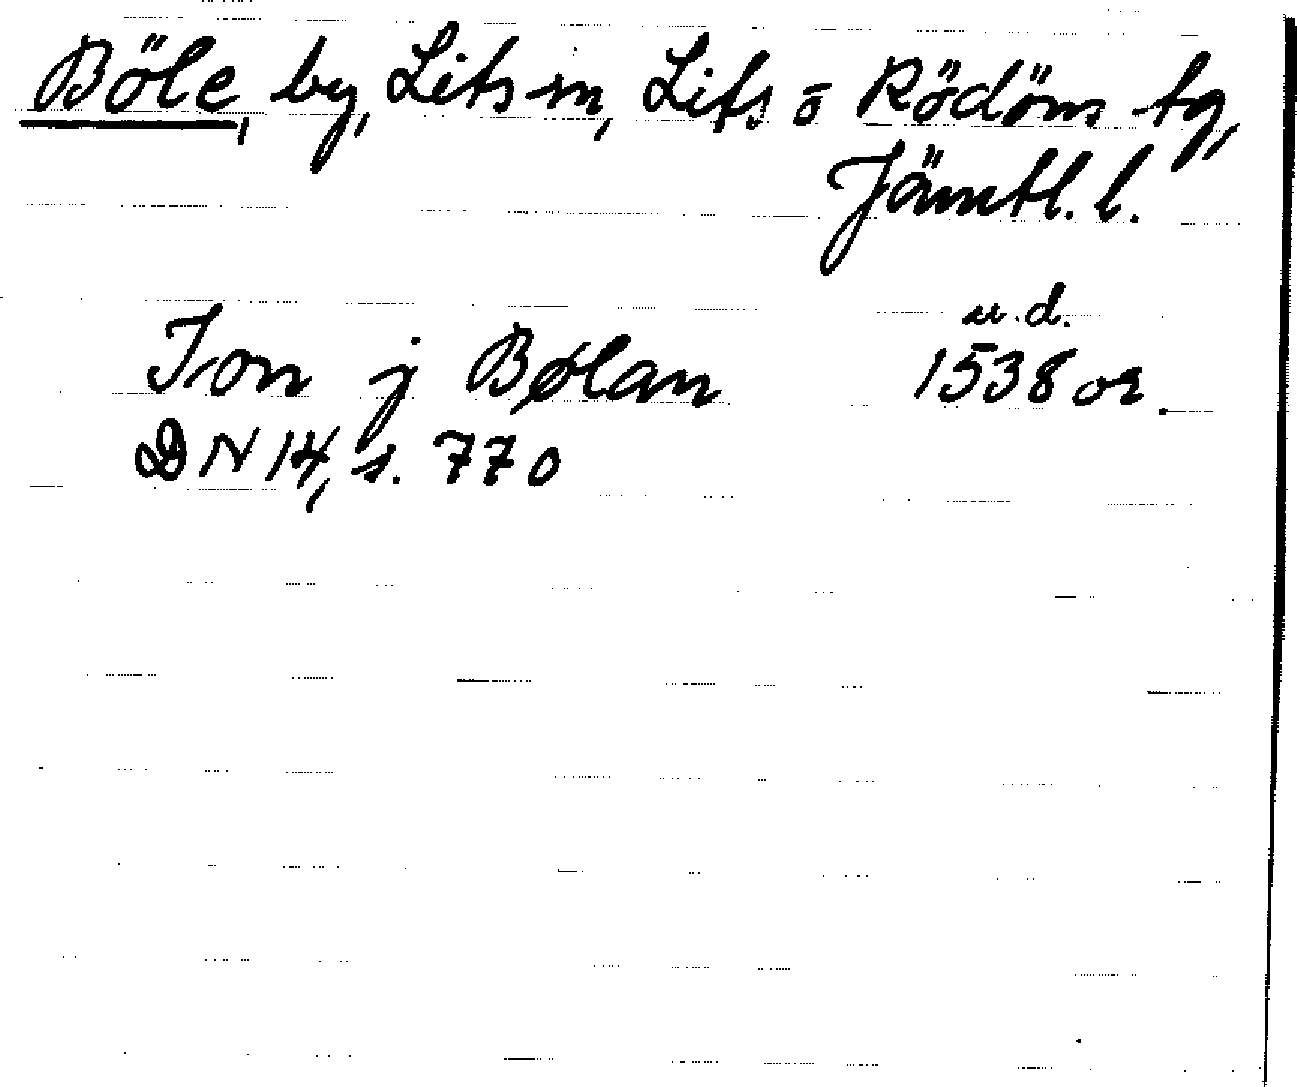 Böle, by, Lits sn, Lits o Rödöns tg,
Jämtl. l.
u.d.
Jon j Bølan 1538 or.
DN 14, s. 770